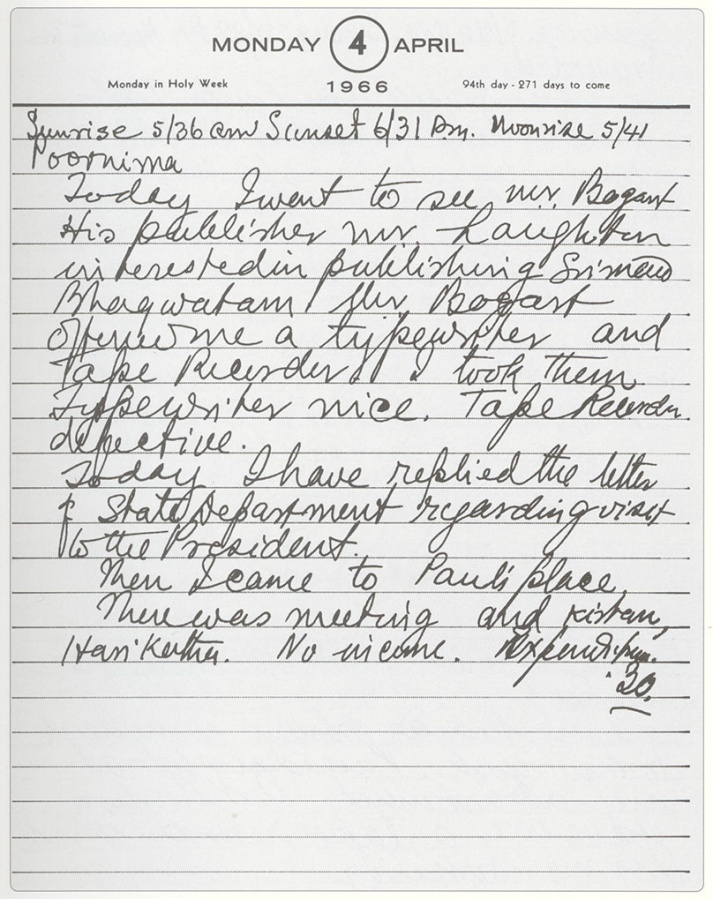 MONDAY 4 APRIL
Monday in Holy Week 1966 94th day - 271 days to come
Sunrise 5/36 am Sunset 6/31 Pm. Moonrise 5/41
Poornima
Today I went to see Mr. Bogart
His publisher Mr. Laughton
interested in publishing Srimad
Bhagwatam. Mr. Bogart
offered me a typewriter and
Tape Recorder. I took them
Typewriter nice. Tape Recorder
defective.
Today I have replied the letter
of State Department regarding visit
to the President.
Then I came to Paul's place,
There was meeting and kirtan,
Hari Katha. No income. Expenditure.
.30